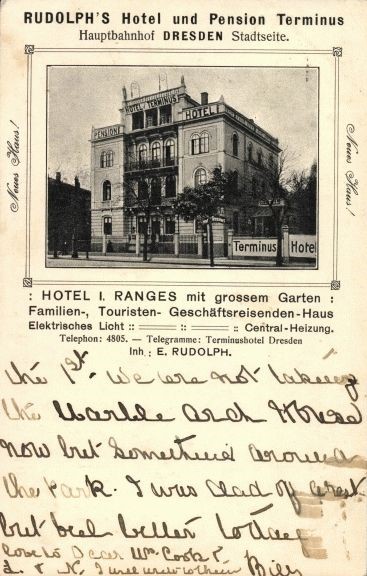 RUDOLPH'S Hotel und Pension Terminus
Hauptbahnhof DRESDEN Stadtseite.
Neues Haus!
PENSION
HOTEL TERMINUS
HOTEL
Terminus Hotel
Neues Haus!
: HOTEL I. RANGES mit grossem Garten :
Familien-, Touristen- Geschäftsreisenden-Haus
Elektrisches Licht :: ::::: :::::: :: Central-Heizung.
Telephon: 4805. — Telegramme: Terminushotel Dresden
Inh.: E. RUDOLPH.
the 1st. We are not taking
the Marble Arch House
now but something around
the Park. I was glad of a rest
but feel better today
love to Dear Mrs. Cook &
L. & N. I will write to them